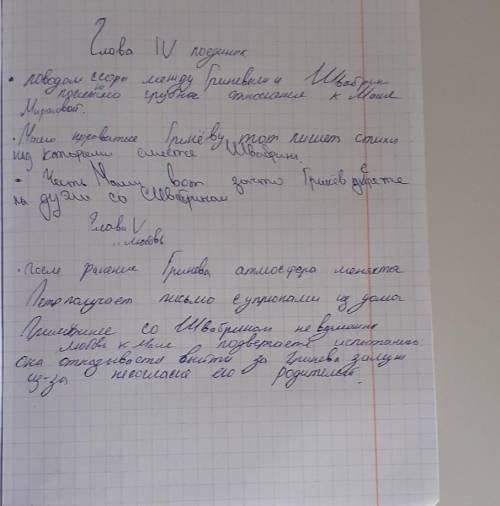 Глава IV поединок
• поводом ссоры между Гриневым и Швабрин
послужило грубое отношение к Маше
Мироновой.
• Маша нравится Гринёву, тот пишет стихи
над которыми смеется Швабрин.
• Честь Маши вот за что Гринёв дерётся
на дуэли со Швабрином
Глава V
"любовь
• После ранение Гринева атмосфера меняется
Петр получает письмо с упрёками из дома
Примирение со Швабрином не возможно
Любовь к Маше подвергается испытанию.
Она отказывается выйти за Гринева замуж
из-за несогласия его родителей.